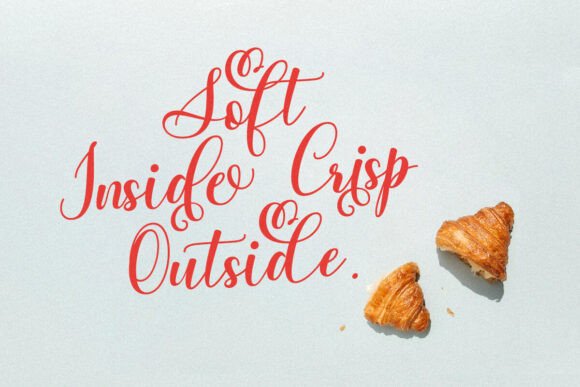 Soft
Inside Crisp
Outside.